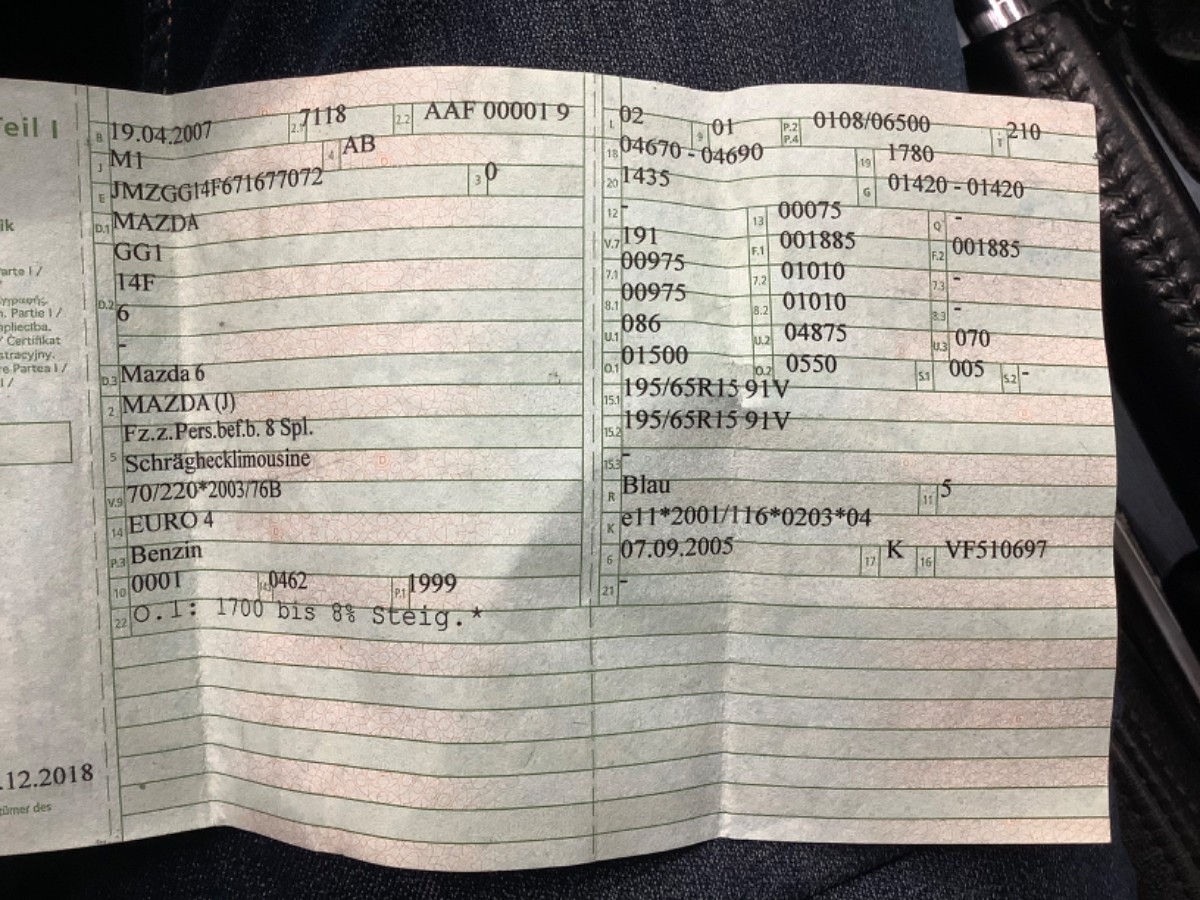 Teil I
ik
arte I /
n. Partie I /
apliecība.
/ Certifikat
stracyjny.
re Partea I /
I /
.12.2018
tümer des
B 19.04.2007 2.1 7118 2.2 AAF 00001 9
J M1 4 AB
E JMZGG14F671677072 3 0
D.1 MAZDA
GG1
14F
D.2 6
-
D.3 Mazda 6
2 MAZDA (J)
Fz.z.Pers.bef.b. 8 Spl.
5 Schräghecklimousine
V.9 70/220*2003/76B
14 EURO 4
P.3 Benzin
10 0001 14.1 0462 P.1 1999
22 O.1: 1700 bis 8% Steig.*
L 02 9 01 P.2 P.4 0108/06500 T 210
18 04670 - 04690 19 1780
20 1435 G 01420 - 01420
12 - 13 00075 Q -
V.7 191 F.1 001885 F.2 001885
7.1 00975 7.2 01010 7.3 -
8.1 00975 8.2 01010 8.3 -
U.1 086 U.2 04875 U.3 070
O.1 01500 O.2 0550 S.1 005 S.2 -
15.1 195/65R15 91V
15.2 195/65R15 91V
15.3 -
R Blau 11 5
K e11*2001/116*0203*04
6 07.09.2005 17 K 16 VF510697
21 -